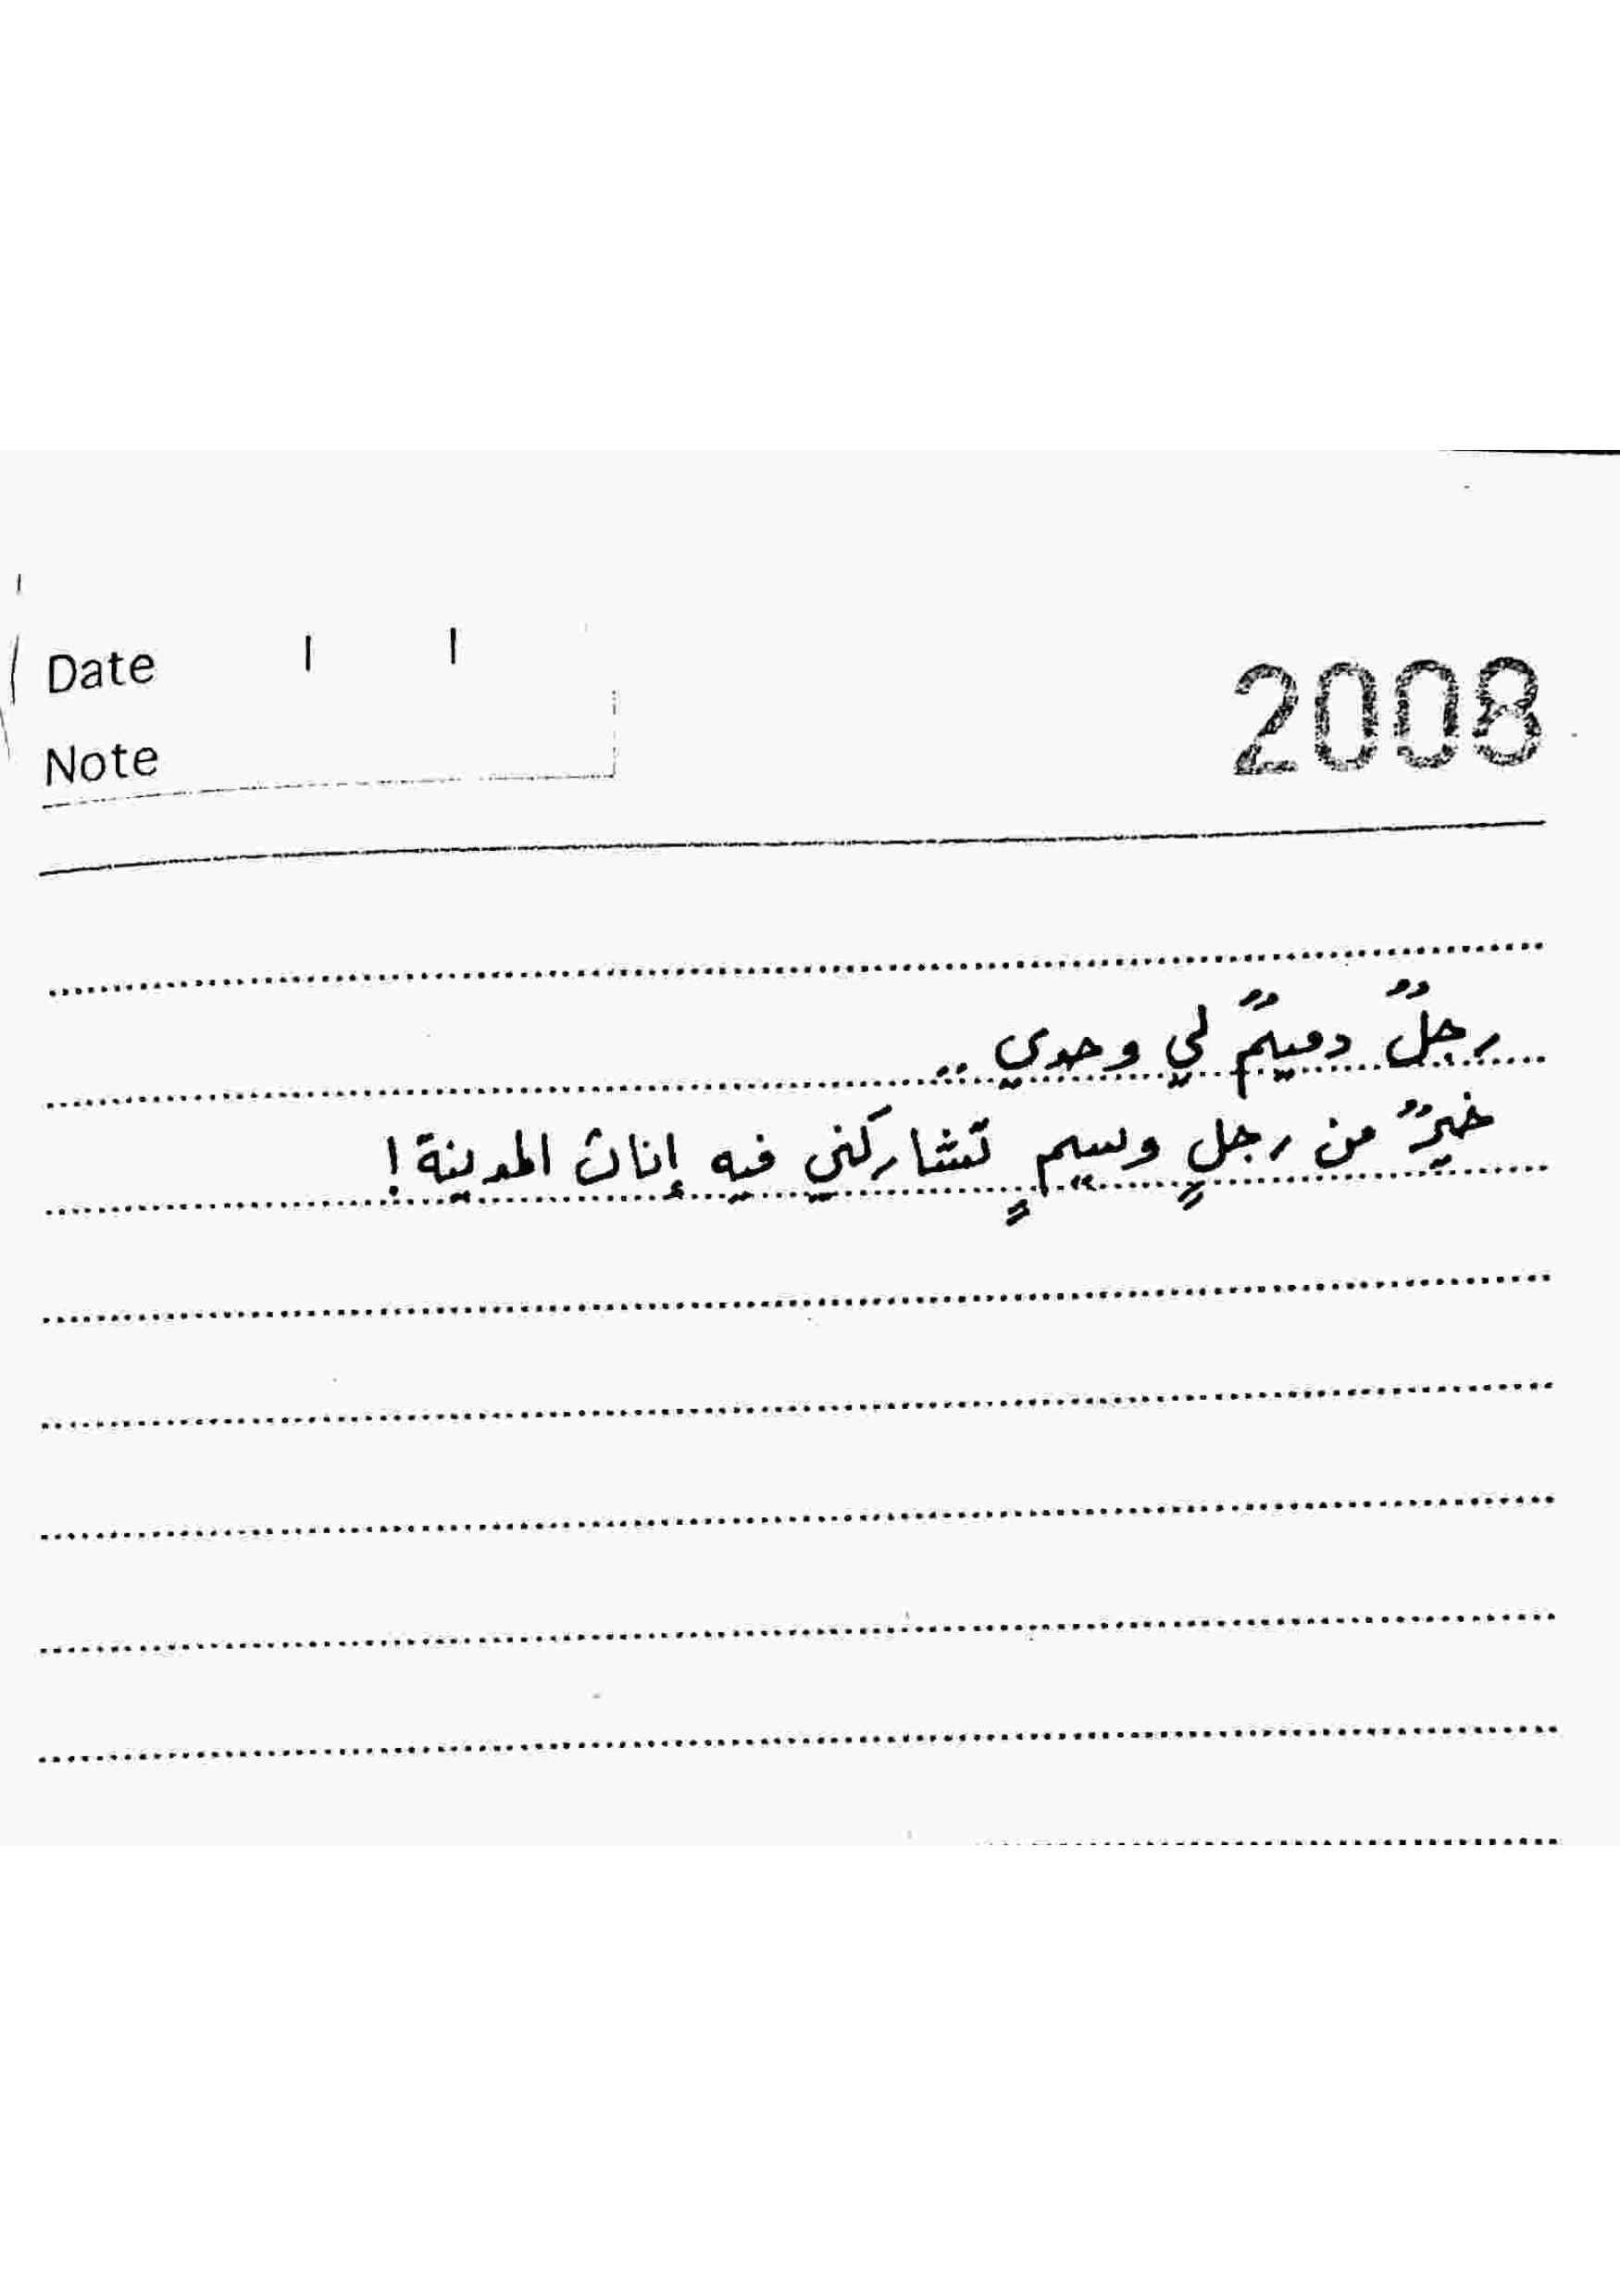 Date / /
Note
2008
رجلٌ دميمٌ لي وحدي ..
خيرٌ من رجلٍ وسيمٍ تشاركني فيه إناث المدينة!